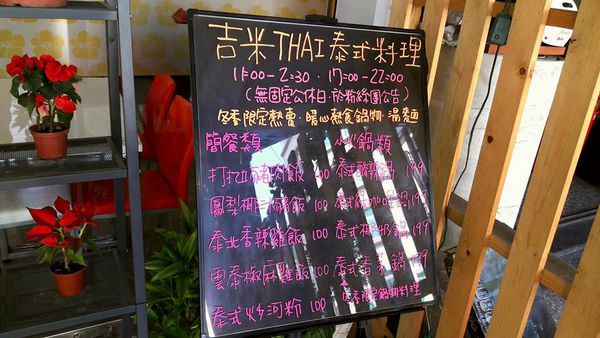 吉米THAI泰式料理
11:00-2:30・17:00-22:00
(無固定公休日・於粉絲團公告)
冬季限定熱賣・暖心熱食鍋物・湯麵
簡餐類
打拋豬肉飯 100
鳳梨椰汁雞飯 100
泰北香辣雞飯 100
雲泰椒麻雞飯 100
泰式炒河粉 100
火鍋類
泰式酸辣鍋 199
泰式 鍋 199
泰式椰奶鍋 199
泰式香茅鍋 199
冬季限定鍋物料理